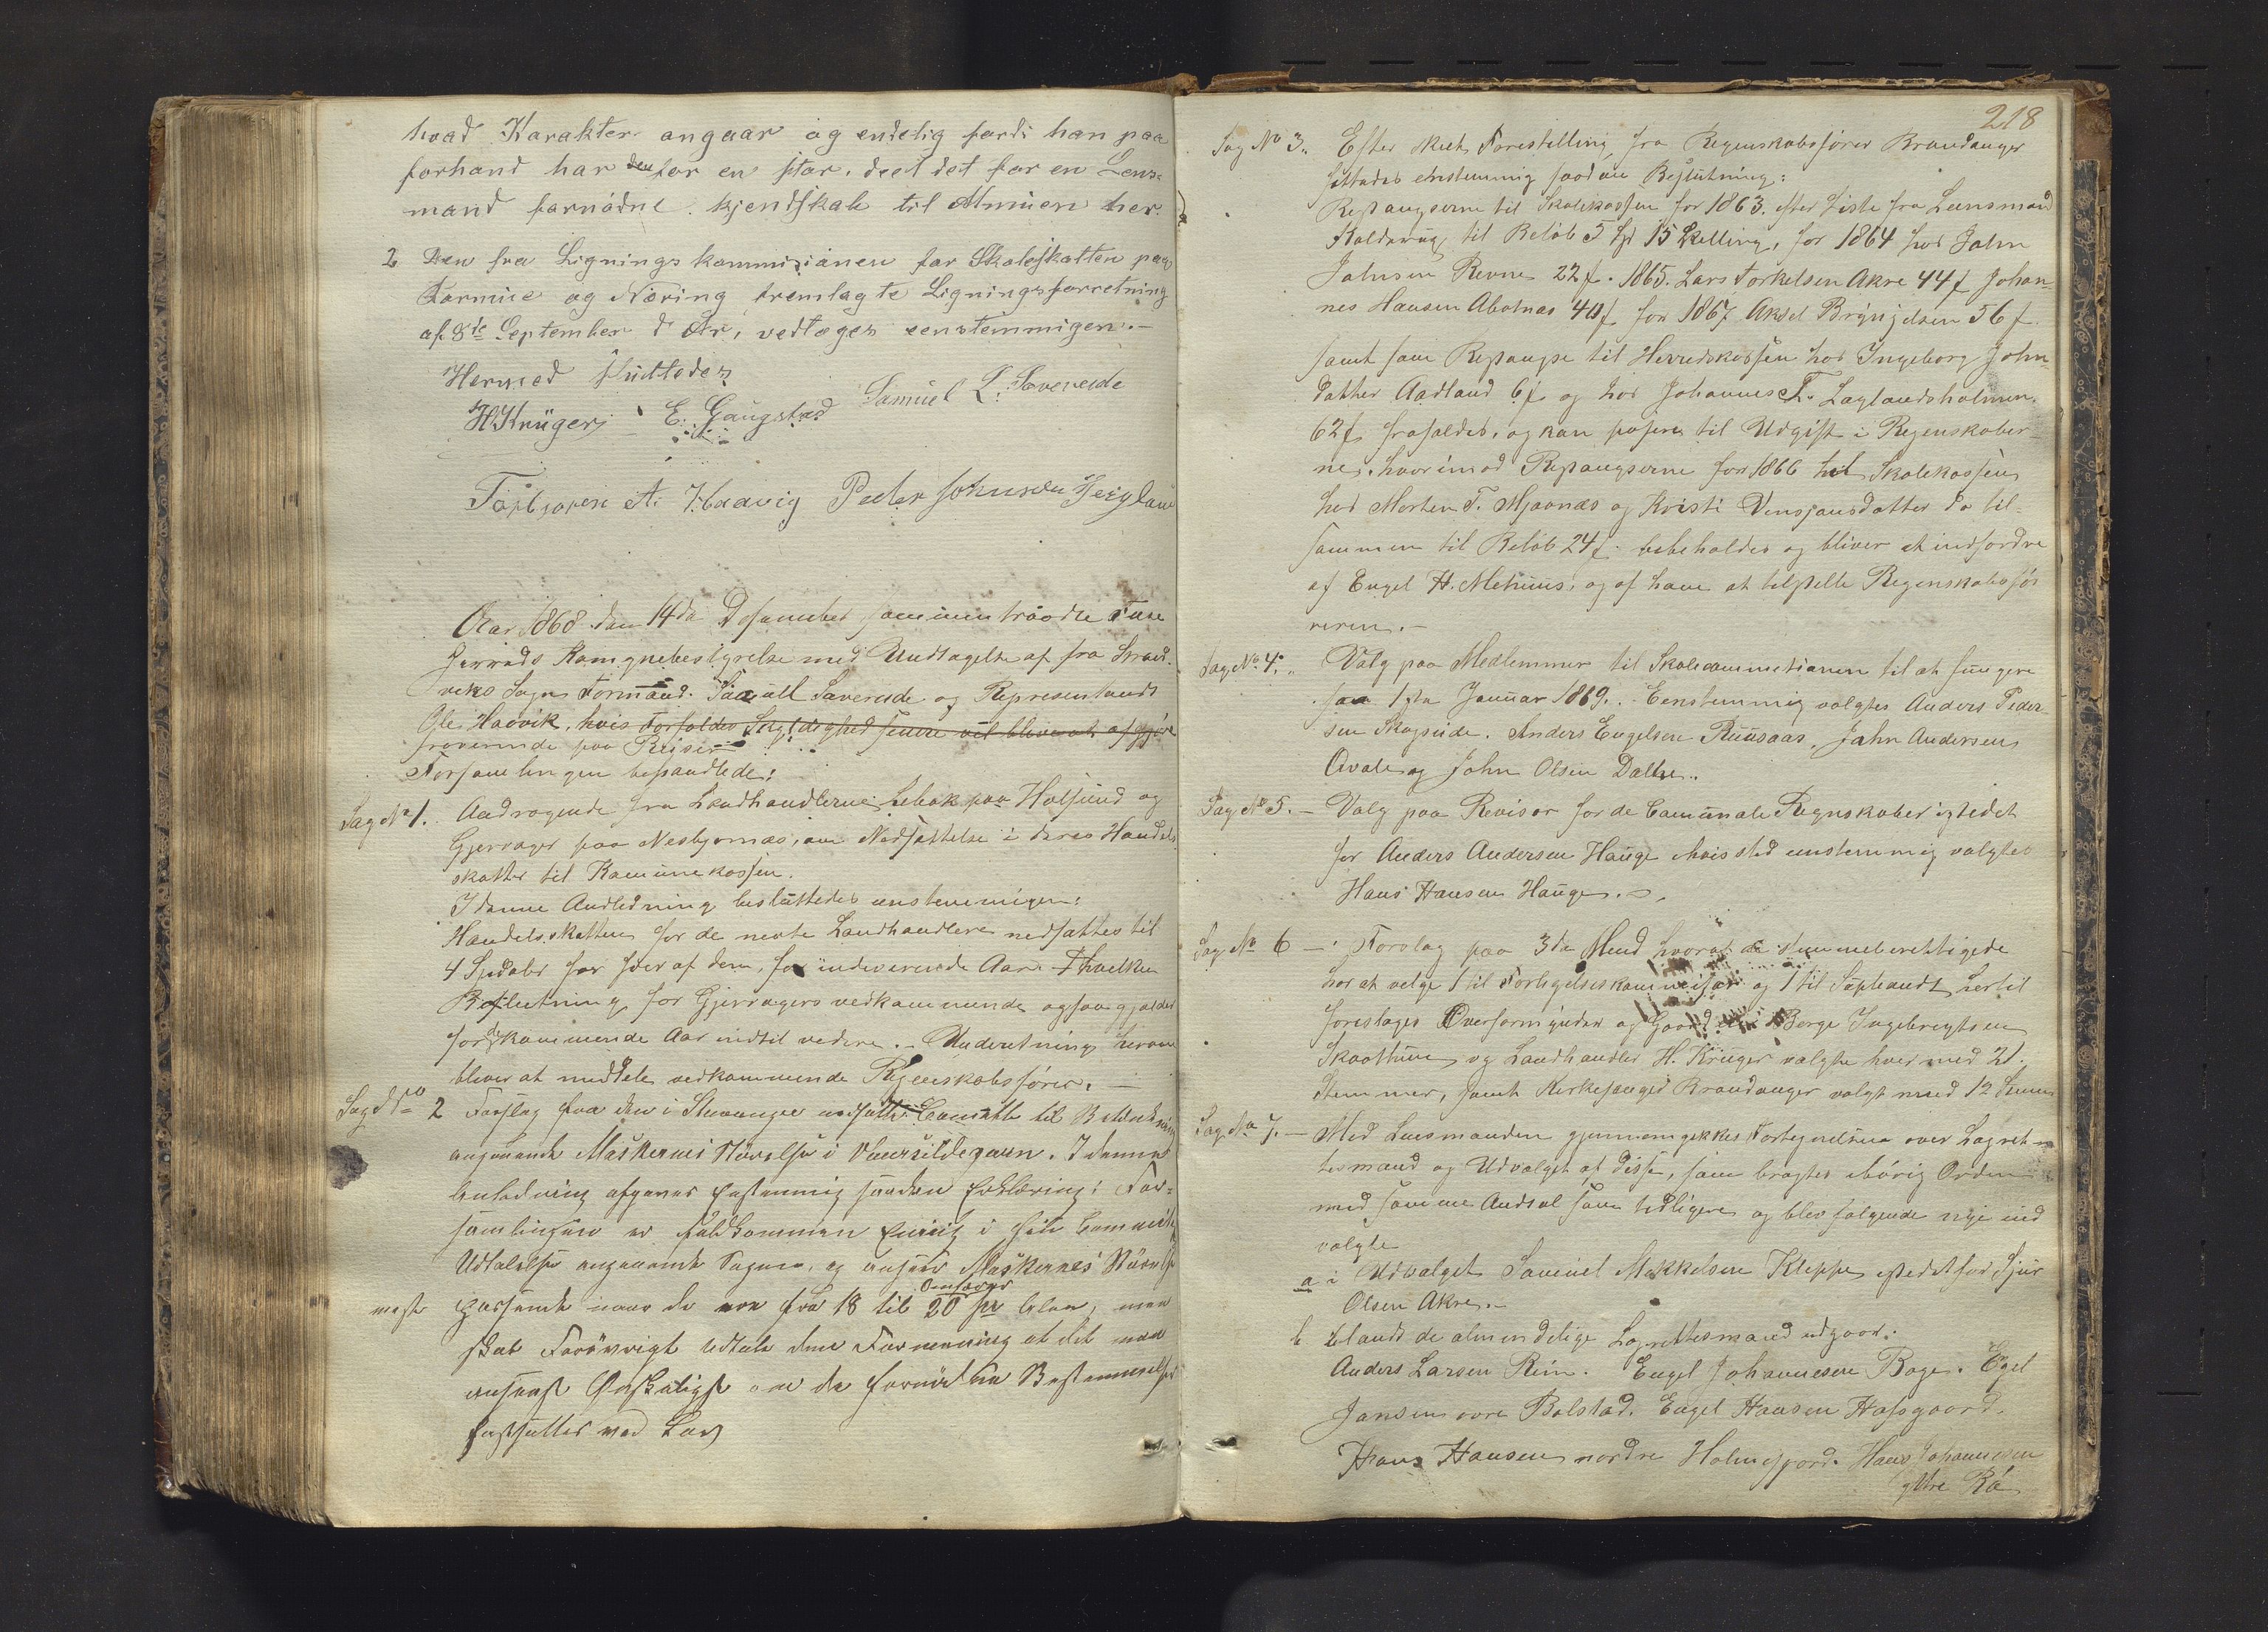 hvad Karakter angaar og endelig fordi han paa
forhand har den for en stor deel det for en Lens-
mand fornødne kjendskab til Almuen her.
2 Den fra Ligningskommisianen for Skoleskatten paa
Formue og Næring fremlagte Ligningsforretning
af 8de September d Aar, vedtages eenstemmigen.-
Hermed sluttedes
H Krüger E. Gaugstad Samuel L. Sævereide
Torbjørn A. Haavig Peder Johnsen Teigland
Aar 1868 den 14da Desember sammentraadte Fuse
Herreds Komunebestyrelse med Undtagelse af fra Strand-
viks Sogn Formand Samuell Sævereide og Representandt
Ole Haavik, hvis Forfalder Skyldighed senere vil blive at afgjøre
fraværende paa Reiser
Forsamlingen behandlede:
Sag No 1. Andragende fra Landhandlerne Lebak paa Holsund og
Gjerrager paa Nesbjørnæs, om Nedsættelse i deres Handels
skatter til Kamunekassen.
I denne Andledning besluttedes eenstemmigen:
Handelsskatten for de nevnte Landhandlere nedsættes til
4 Spidaler for hver af dem, for indeværende Aar. Thvelken
Beslutning for Gjerragers vedkammende ogsaa gjælder
for de kammende Aar indtil videre.. Underetning herom
bliver at meddele vedkammende Regenskabsfører. -
Sag No 2 Forslag fra den i Stavanger nedsatte Comitte til Betænkning
angaaende Maskernes Størrelse i Vaarsildegarn. I denne
Anledning afgaves Enstemmig saadan Erklæring: For-
samlingen er fuldkommen Enig i hele Commiteens
Udtalelse angaaende Sagen, og anseer Maskernes Størrelse
mest passende naar de ere fra 18 til 20 Omfarer pr Alen, man
skal Forøvrigt udtale den Formening at det var
ansees Ønskeligst om de fornødne Bestemmelser
fastsættes ved Lov
218
Sag No 3.. Efter skeet Forestilling fra Regenskabsfører Brandanger
fattedes enstemmig saadan Beslutning:
Restangserne til Skolekassen for 1863. efter Liste fra Lensmand
Koldevig, til Beløb 5 Spd 15 Skelling, for 1864 hos John
Johnsen Revne 22 f. 1865. Lars Torkelsen Akre 44 f Johan-
nes Hansen Abotnæs 40 f for 1867 Aksel Brynjelsen 56 f
samt som Restangse til Herredskassen hos Ingeborg John-
datter Aadland 6 f og hos Johannes T. Laglandsholmen
62 f frafaldes, og kan føres til Udgift i Regenskaber-
ne, hvorimod Restangserne for 1866 til Skolekassen
hos Morten T. Mjaanæs og Kristi Vensjansdatter do til-
sammen til Beløb 24 f. bebeholdes og bliver at indfordre
af Engel H. Mehuus, og af ham at tilstelle Regenskabsfø
reren.-
Sag No 4.. Valg paa Medlemmer til Skolecommisionen til at fungere
fra 1ste Januar 1869.. Eenstemmig valgtes Anders Peder-
sen Skogseide. Anders Engelsen Ruusaas, John Andersen
Qvale og John Olsen Dalke..
Sag No 5.- Valg paa Revisor for de Camunale Regnskaber istedet
for Anders Andersen Hauge hvis sted eenstemmig valgtes
Hans Hansen Hauge.-
Sag No 6 - Forslag paa 3de Mend hvoraf de stemmeberettigede
har at velge 1 til Forligelseskommissær og 1 til Supleandt hertil
foreslages Overformynder og Gaardeier Børge Ingebregtsen
Skaathun og Landhandler H. Krüger valgte hver med 21.
Stemmer, samt Kirkesanger Brandanger valgt med 12 Stemmer
Sag No 7.- Med Lensmanden gjennemgikkes Fortegnelsene over Lagret-
tesmænd og Udvalget af disse, som bragtes ibørig Orden
med samme Andtal som tidligere og blev følgende nye ind
valgte
a i Udvalget Samuel Mikkelsen Kleppe istedetfor Sjur
Olsen Akre.-
b blandt de almindelige Lagrettesmænd udgaar:
Anders Larsen Riim. Engel Johannesen Boge. Egel
Jansen øvre Bolstad. Engel Hansen Hafsgaard.
Hans Hansen nordre Holmefjord. Hans Johannesen
ytre Bø